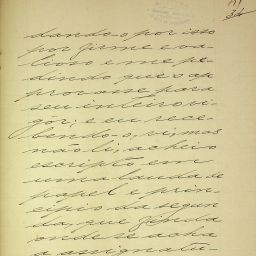 34
dando-o por isso
por firme e va-
lioso e me pe-
dindo que o ap
provasse para
seu inteiro vi-
gôr; e eu rece-
bendo-o, vi, mas
não li, achei-o
escripto em
uma lauda de
papel e prin-
cipio da segun
da, que finda
onde se acha
a assignatu-